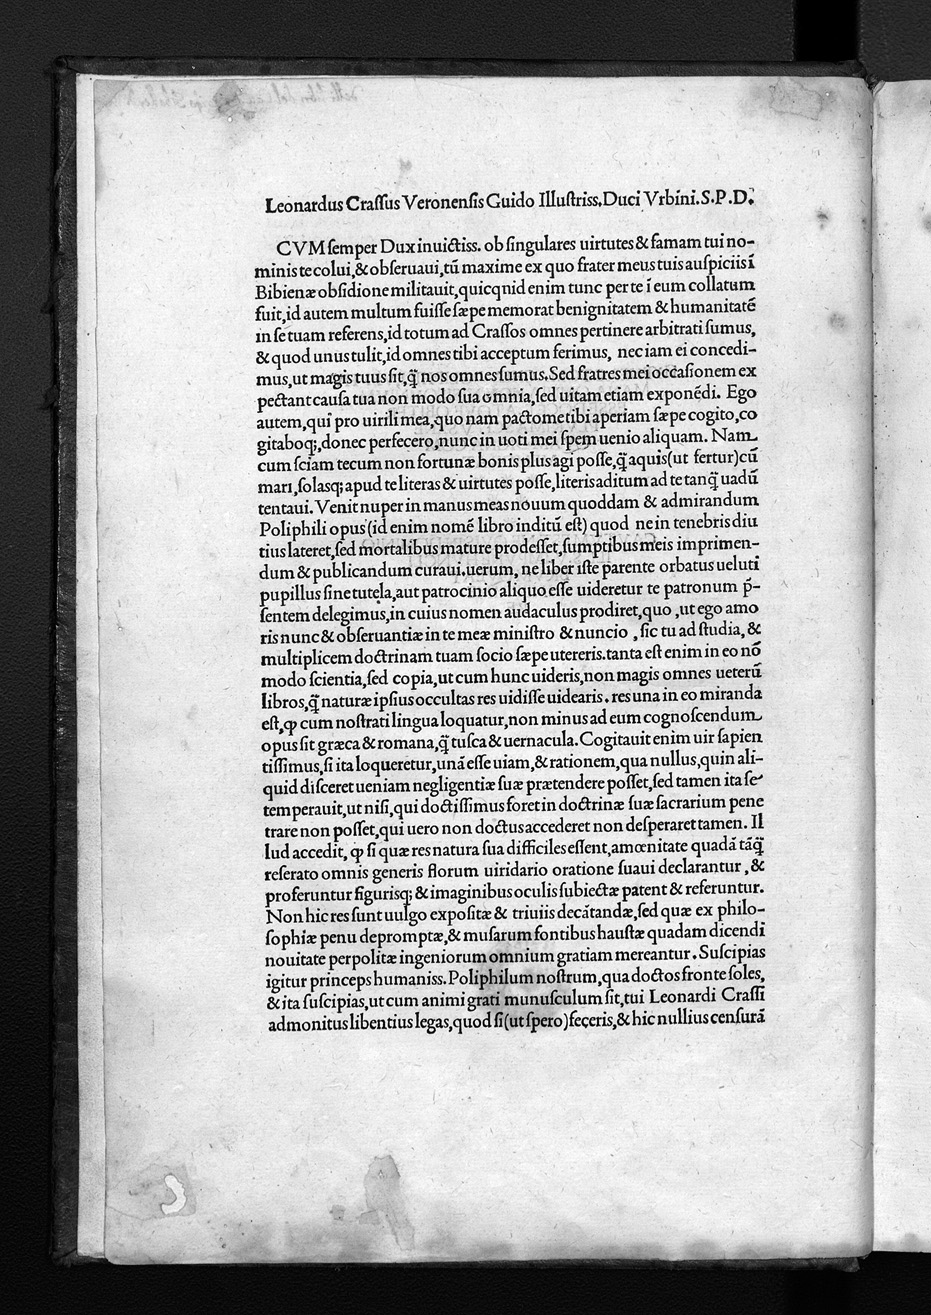 Leonardus Crassus Veronensis Guido Illustriss. Duci Vrbini. S.P.D.
CVM semper Dux inuictiss. ob singulares uirtutes & famam tui no-
minis te colui, & obseruaui, tū maxime ex quo frater meus tuis auspiciis ī
Bibienæ obsidione militauit, quicqnid enim tunc per te ī eum collatum
fuit, id autem multum fuisse sæpe memorat benignitatem & humanitatē
in se tuam referens, id totum ad Crassos omnes pertinere arbitrati sumus,
& quod unus tulit, id omnes tibi acceptum ferimus, nec iam ei concedi-
mus, ut magis tuus sit, q̄ nos omnes sumus. Sed fratres mei occasionem ex
pectant causa tua non modo sua omnia, sed uitam etiam exponēdi. Ego
autem, qui pro uirili mea, quo nam pacto me tibi aperiam sæpe cogito, co
gitaboq;, donec perfecero, nunc in uoti mei spem uenio aliquam. Nam
cum sciam tecum non fortunæ bonis plus agi posse, q̄ aquis (ut fertur) cū
mari, solasq; apud te literas & uirtutes posse, literis aditum ad te tanq̄ uadū
tentaui. Venit nuper in manus meas nouum quoddam & admirandum
Poliphili opus (id enim nomē libro inditū est) quod ne in tenebris diu
tius lateret, sed mortalibus mature prodesset, sumptibus meis imprimen-
dum & publicandum curaui. uerum, ne liber iste parente orbatus ueluti
pupillus sine tutela, aut patrocinio aliquo esse uideretur te patronum p̄-
sentem delegimus, in cuius nomen audaculus prodiret, quo, ut ego amo
ris nunc & obseruantiæ in te meæ ministro & nuncio, sic tu ad studia, &
multiplicem doctrinam tuam socio sæpe utereris. tanta est enim in eo nō
modo scientia, sed copia, ut cum hunc uideris, non magis omnes ueterū
libros, q̄ naturæ ipsius occultas res uidisse uidearis. res una in eo miranda
est, ꝙ cum nostrati lingua loquatur, non minus ad eum cognoscendum
opus sit græca & romana, q̄ tusca & uernacula. Cogitauit enim uir sapien
tissimus, si ita loqueretur, unā esse uiam, & rationem, qua nullus, quin ali-
quid disceret ueniam negligentiæ suæ prætendere posset, sed tamen ita se
temperauit, ut nisi, qui doctissimus foret in doctrinæ suæ sacrarium pene
trare non posset, qui uero non doctus accederet non desperaret tamen. Il
lud accedit, ꝙ si quæ res natura sua difficiles essent, amœnitate quadā tāq̄
reserato omnis generis florum uiridario oratione suaui declarantur, &
proferuntur figurisq; & imaginibus oculis subiectæ patent & referuntur.
Non hic res sunt uulgo expositæ & triuiis decātandæ, sed quæ ex philo-
sophiæ penu depromptæ, & musarum fontibus haustæ quadam dicendi
nouitate perpolitæ ingeniorum omnium gratiam mereantur. Suscipias
igitur princeps humaniss. Poliphilum nostrum, qua doctos fronte soles,
& ita suscipias, ut cum animi grati munusculum sit, tui Leonardi Crassi
admonitus libentius legas, quod si (ut spero) feceris, & hic nullius censurā